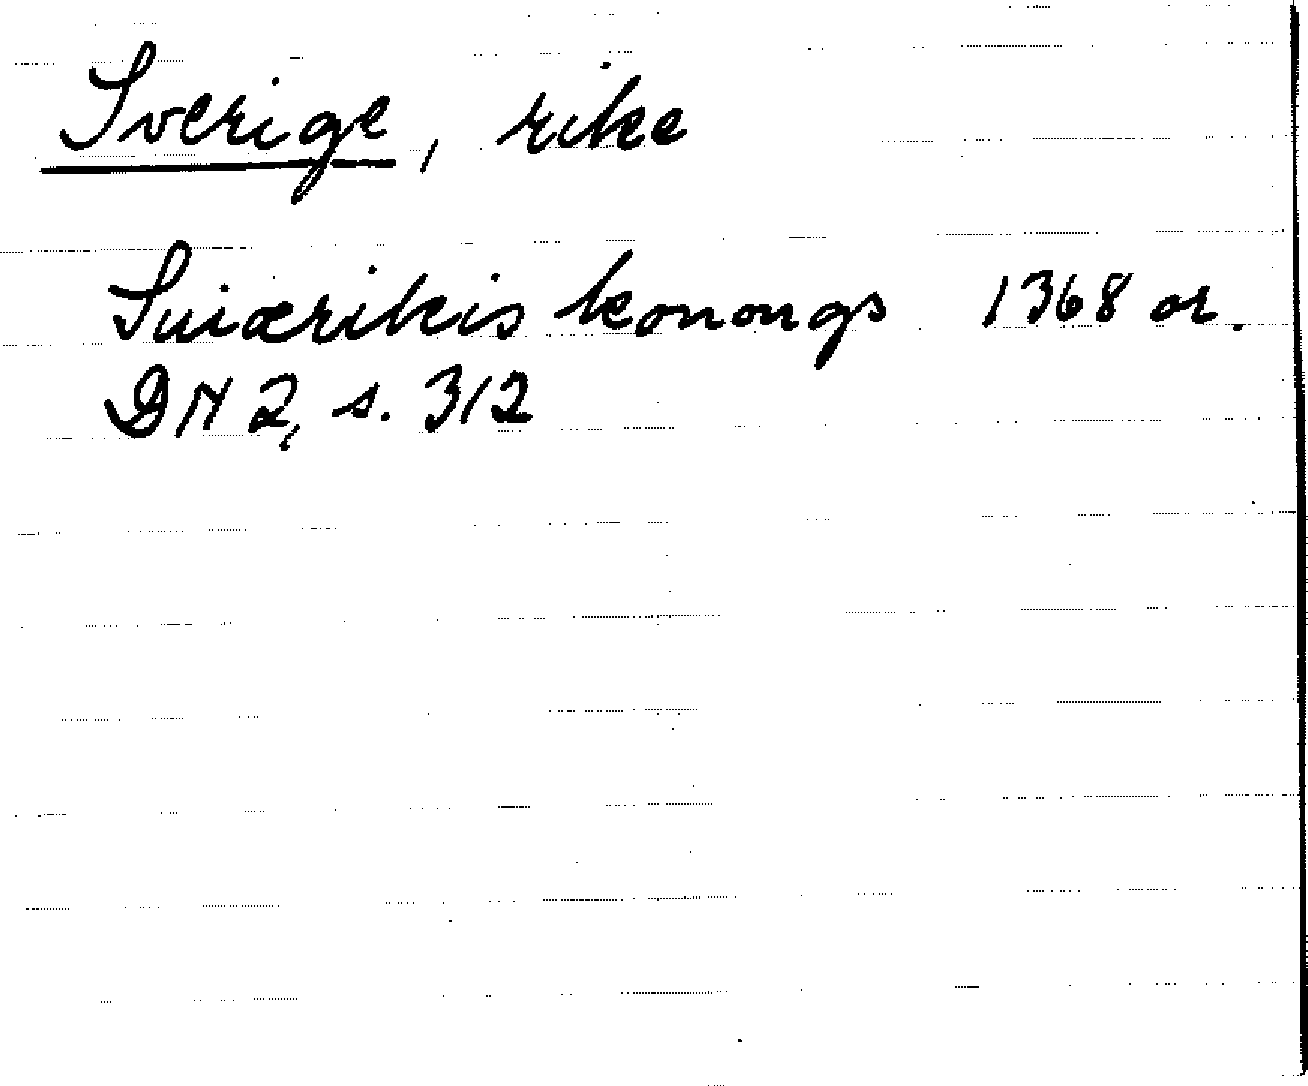 Sverige, rike
Suiærikis konongs 1368 or.
DN 2, s. 312